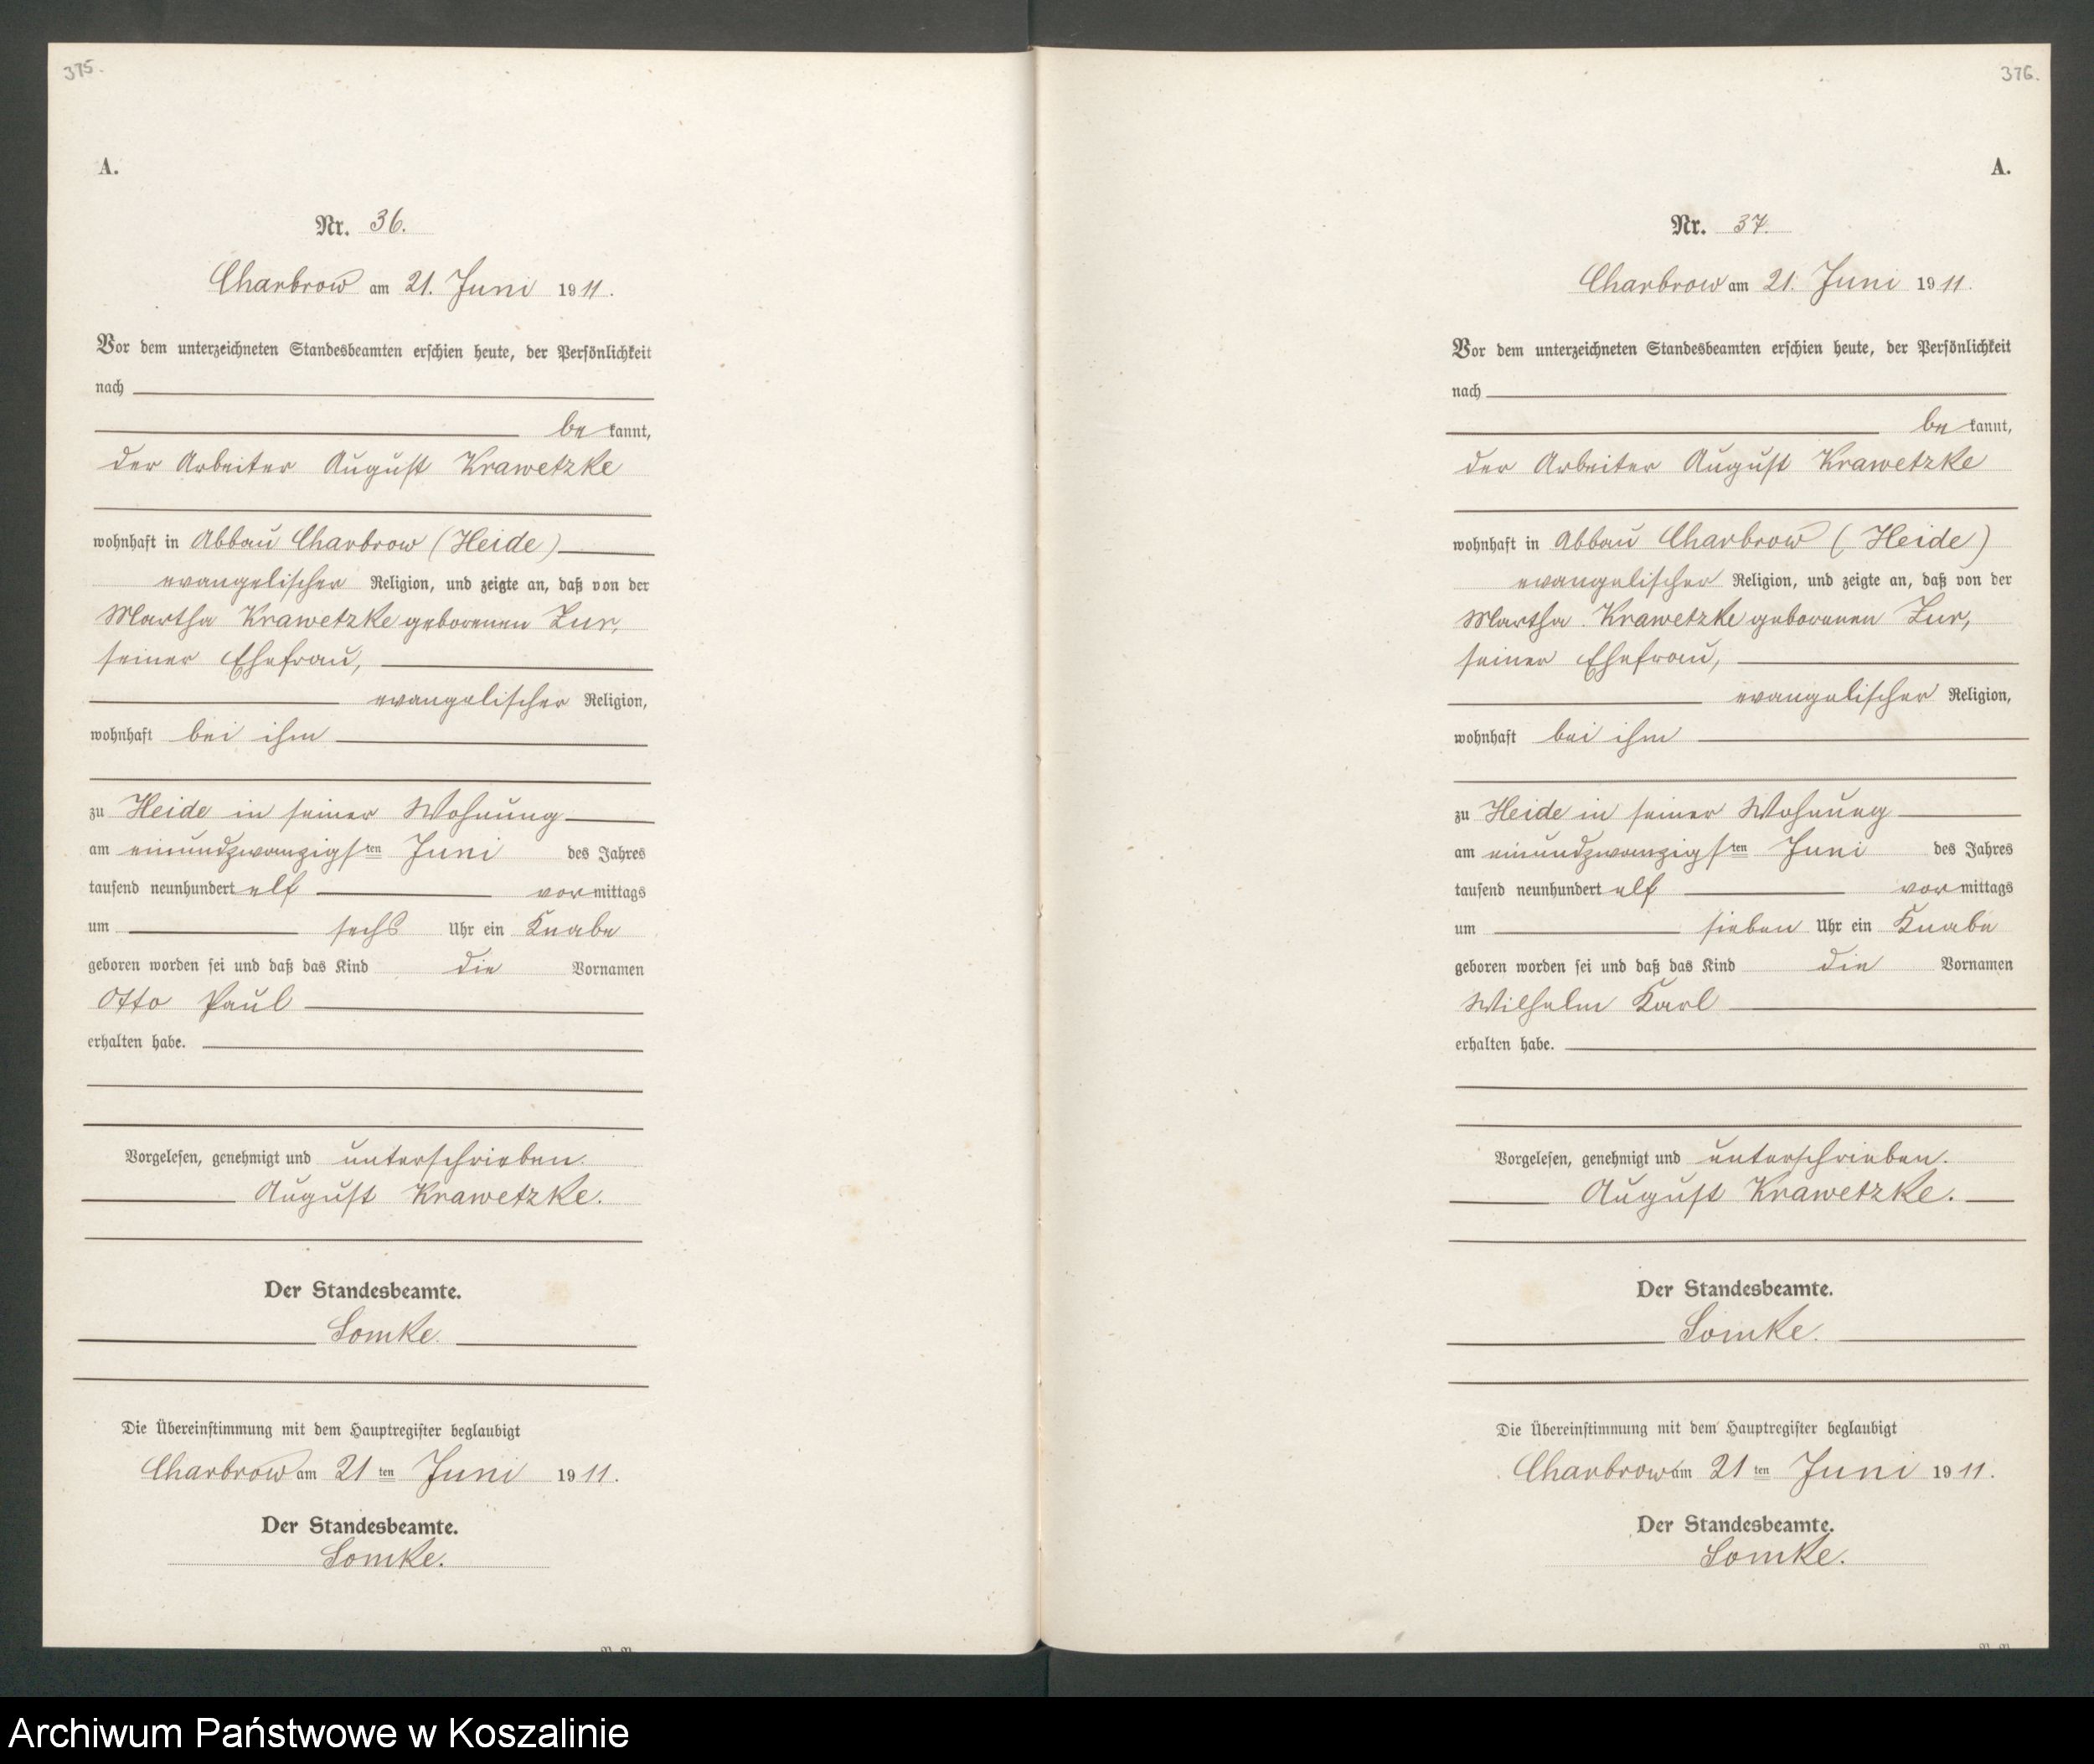 375.
A.
Nr. 36.
Charbrow am 21. Juni 1911.
Vor dem unterzeichneten Standesbeamten erschien heute, der Persönlichkeit
nach
bekannt,
der Arbeiter August Krawetzke
wohnhaft in Abbau Charbrow (Heide)
evangelischer Religion, und zeigte an, daß von der
Martha Krawetzke geborenen Zur,
seiner Ehefrau,
evangelischer Religion,
wohnhaft bei ihm
zu Heide in seiner Wohnung
am einundzwanzigsten Juni des Jahres
tausend neunhundert elf vormittags
um sechs Uhr ein Knabe
geboren worden sei und daß das Kind die Vornamen
Otto Paul
erhalten habe.
Vorgelesen, genehmigt und unterschrieben.
August Krawetzke.
Der Standesbeamte.
Lomke.
Die Übereinstimmung mit dem Hauptregister beglaubigt
Charbrow am 21ten Juni 1911.
Der Standesbeamte.
Lomke.
376.
A.
Nr. 37.
Charbrow am 21. Juni 1911.
Vor dem unterzeichneten Standesbeamten erschien heute, der Persönlichkeit
nach
bekannt,
der Arbeiter August Krawetzke
wohnhaft in Abbau Charbrow (Heide)
evangelischer Religion, und zeigte an, daß von der
Martha Krawetzke geborenen Zur,
seiner Ehefrau,
evangelischer Religion,
wohnhaft bei ihm
zu Heide in seiner Wohnung
am einundzwanzigsten Juni des Jahres
tausend neunhundert elf vormittags
um sieben Uhr ein Knabe
geboren worden sei und daß das Kind die Vornamen
Wilhelm Karl
erhalten habe.
Vorgelesen, genehmigt und unterschrieben.
August Krawetzke.
Der Standesbeamte.
Lomke.
Die Übereinstimmung mit dem Hauptregister beglaubigt
Charbrow am 21ten Juni 1911.
Der Standesbeamte.
Lomke.
Archiwum Państwowe w Koszalinie